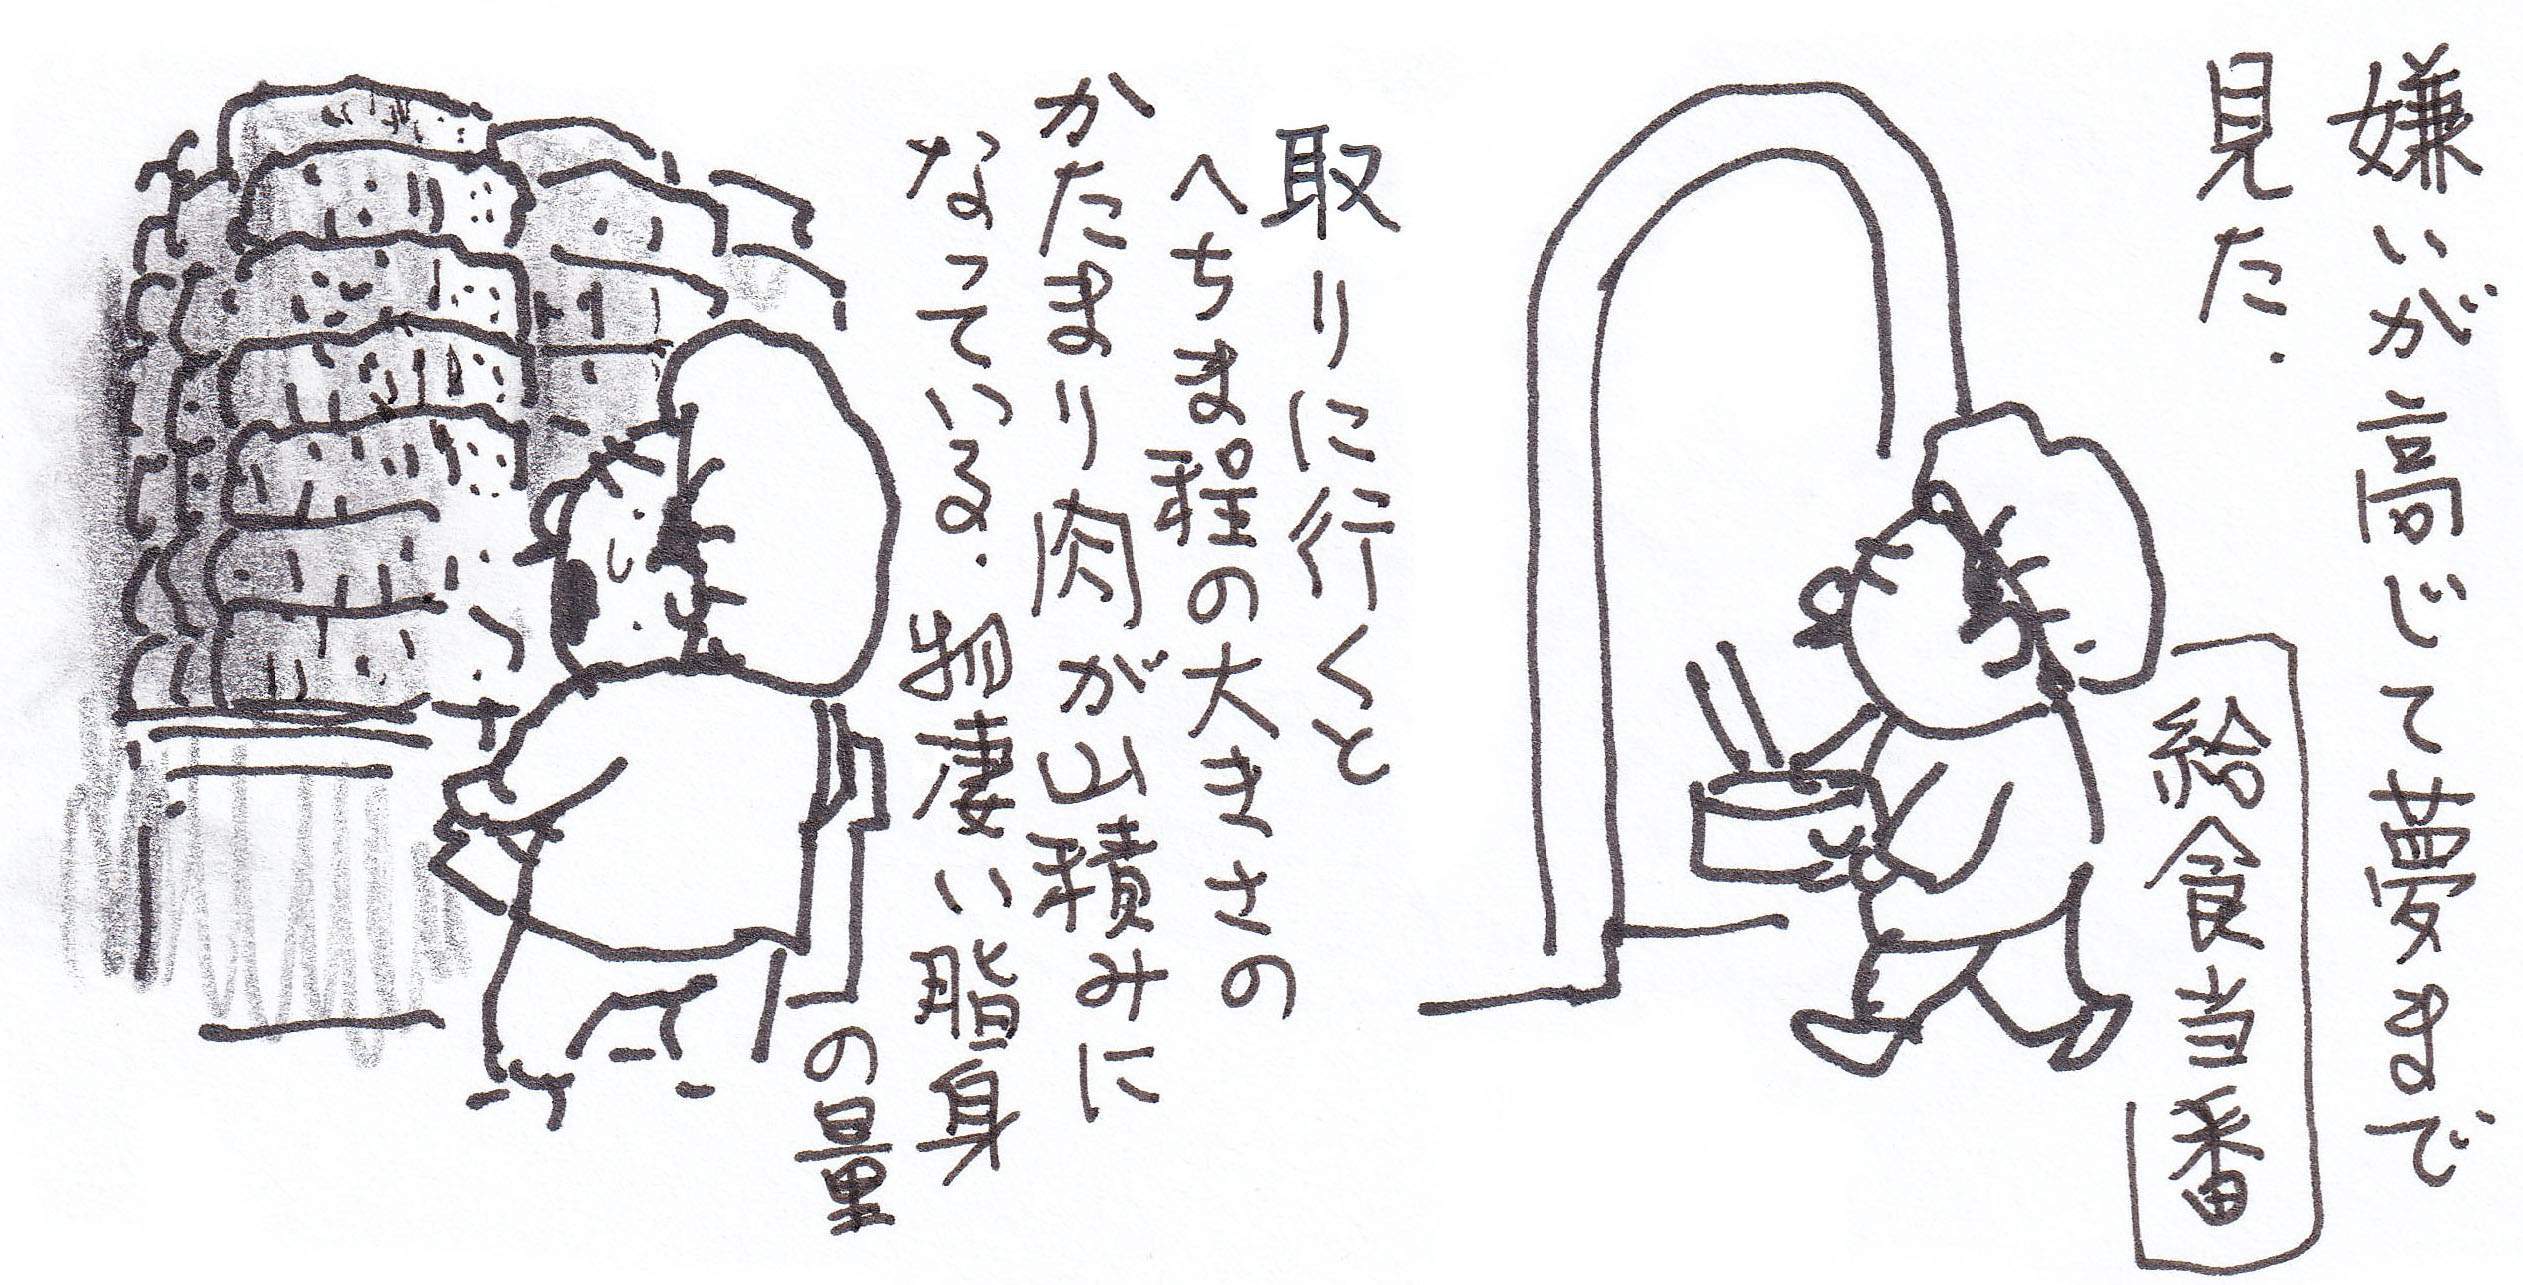 嫌いが高じて夢まで
見た.
給食当番
取りに行くと
へちま程の大きさの
かたまり肉が山積みに
なっている. 物凄い脂身
の量